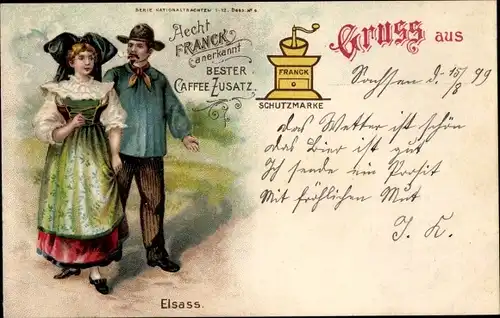 SERIE NATIONALTRACHTEN 1-12. Dess. No 6.
Aecht
FRANCK
anerkannt
BESTER
CAFFEE ZUSATZ.
FRANCK
SCHUTZMARKE
Gruss aus
Sachsen d. 15/8 99
das Wetter ist schön
das Bier ist gut
Ich sende ein Prosit
Mit fröhlichen Mut
J. K.
Elsass.